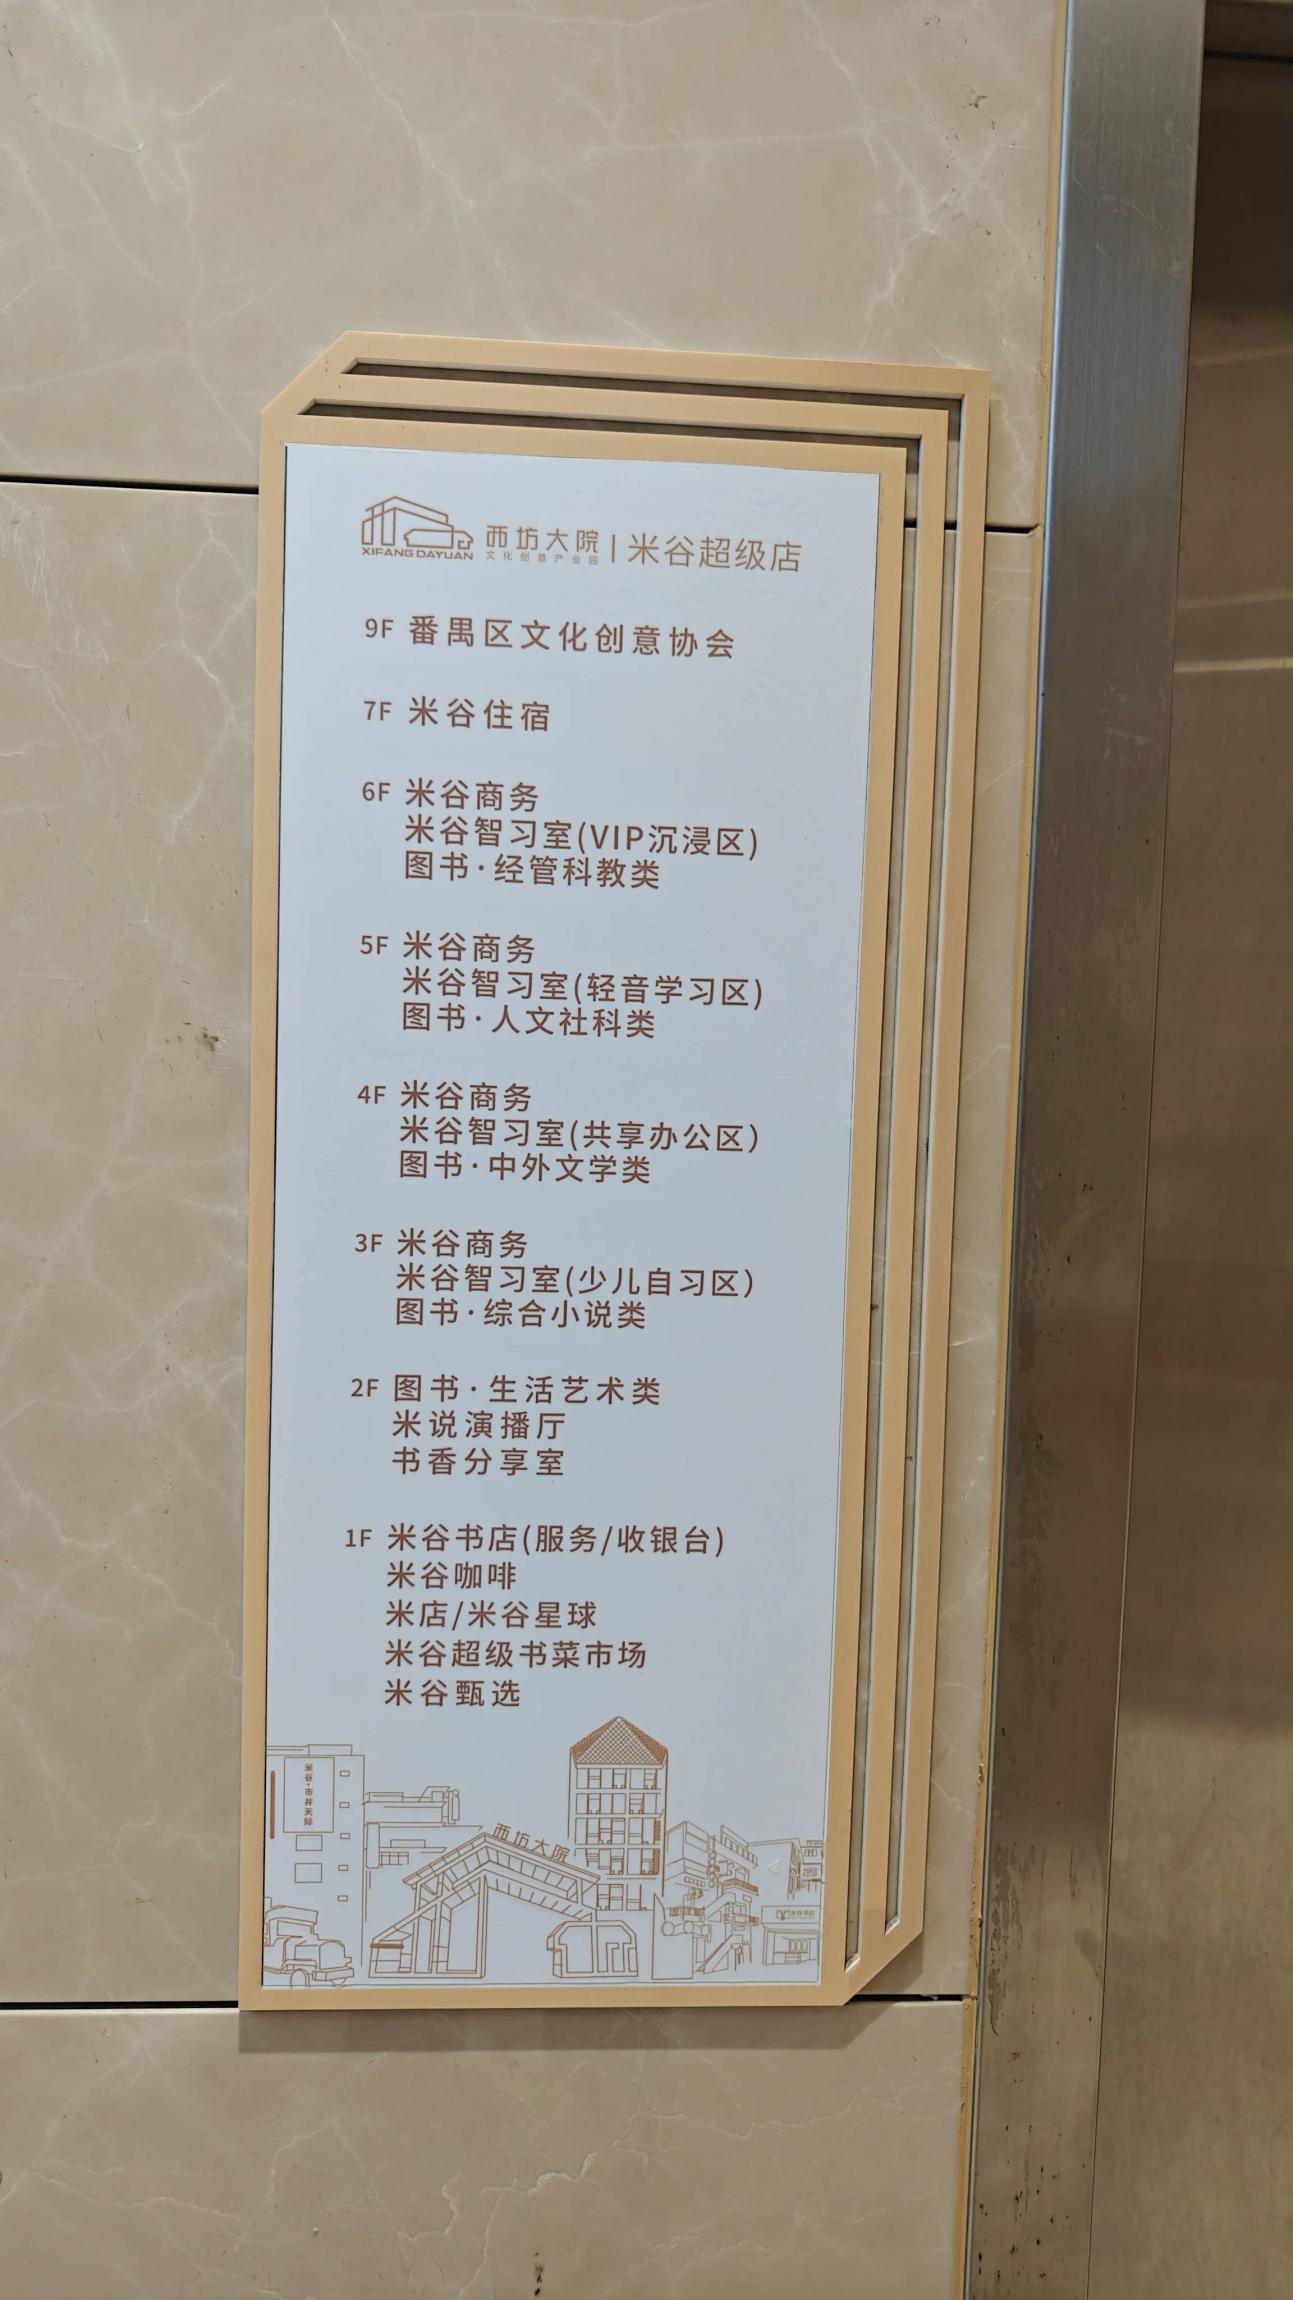 西坊大院 | 米谷超级店
XIFANG DAYUAN 文化创意产业园
9F 番禺区文化创意协会
7F 米谷住宿
6F 米谷商务
米谷智习室(VIP沉浸区)
图书·经管科教类
5F 米谷商务
米谷智习室(轻音学习区)
图书·人文社科类
4F 米谷商务
米谷智习室(共享办公区)
图书·中外文学类
3F 米谷商务
米谷智习室(少儿自习区)
图书·综合小说类
2F 图书·生活艺术类
米说演播厅
书香分享室
1F 米谷书店(服务/收银台)
米谷咖啡
米店/米谷星球
米谷超级书菜市场
米谷甄选
米谷·市井天际
西坊大院
米谷书店